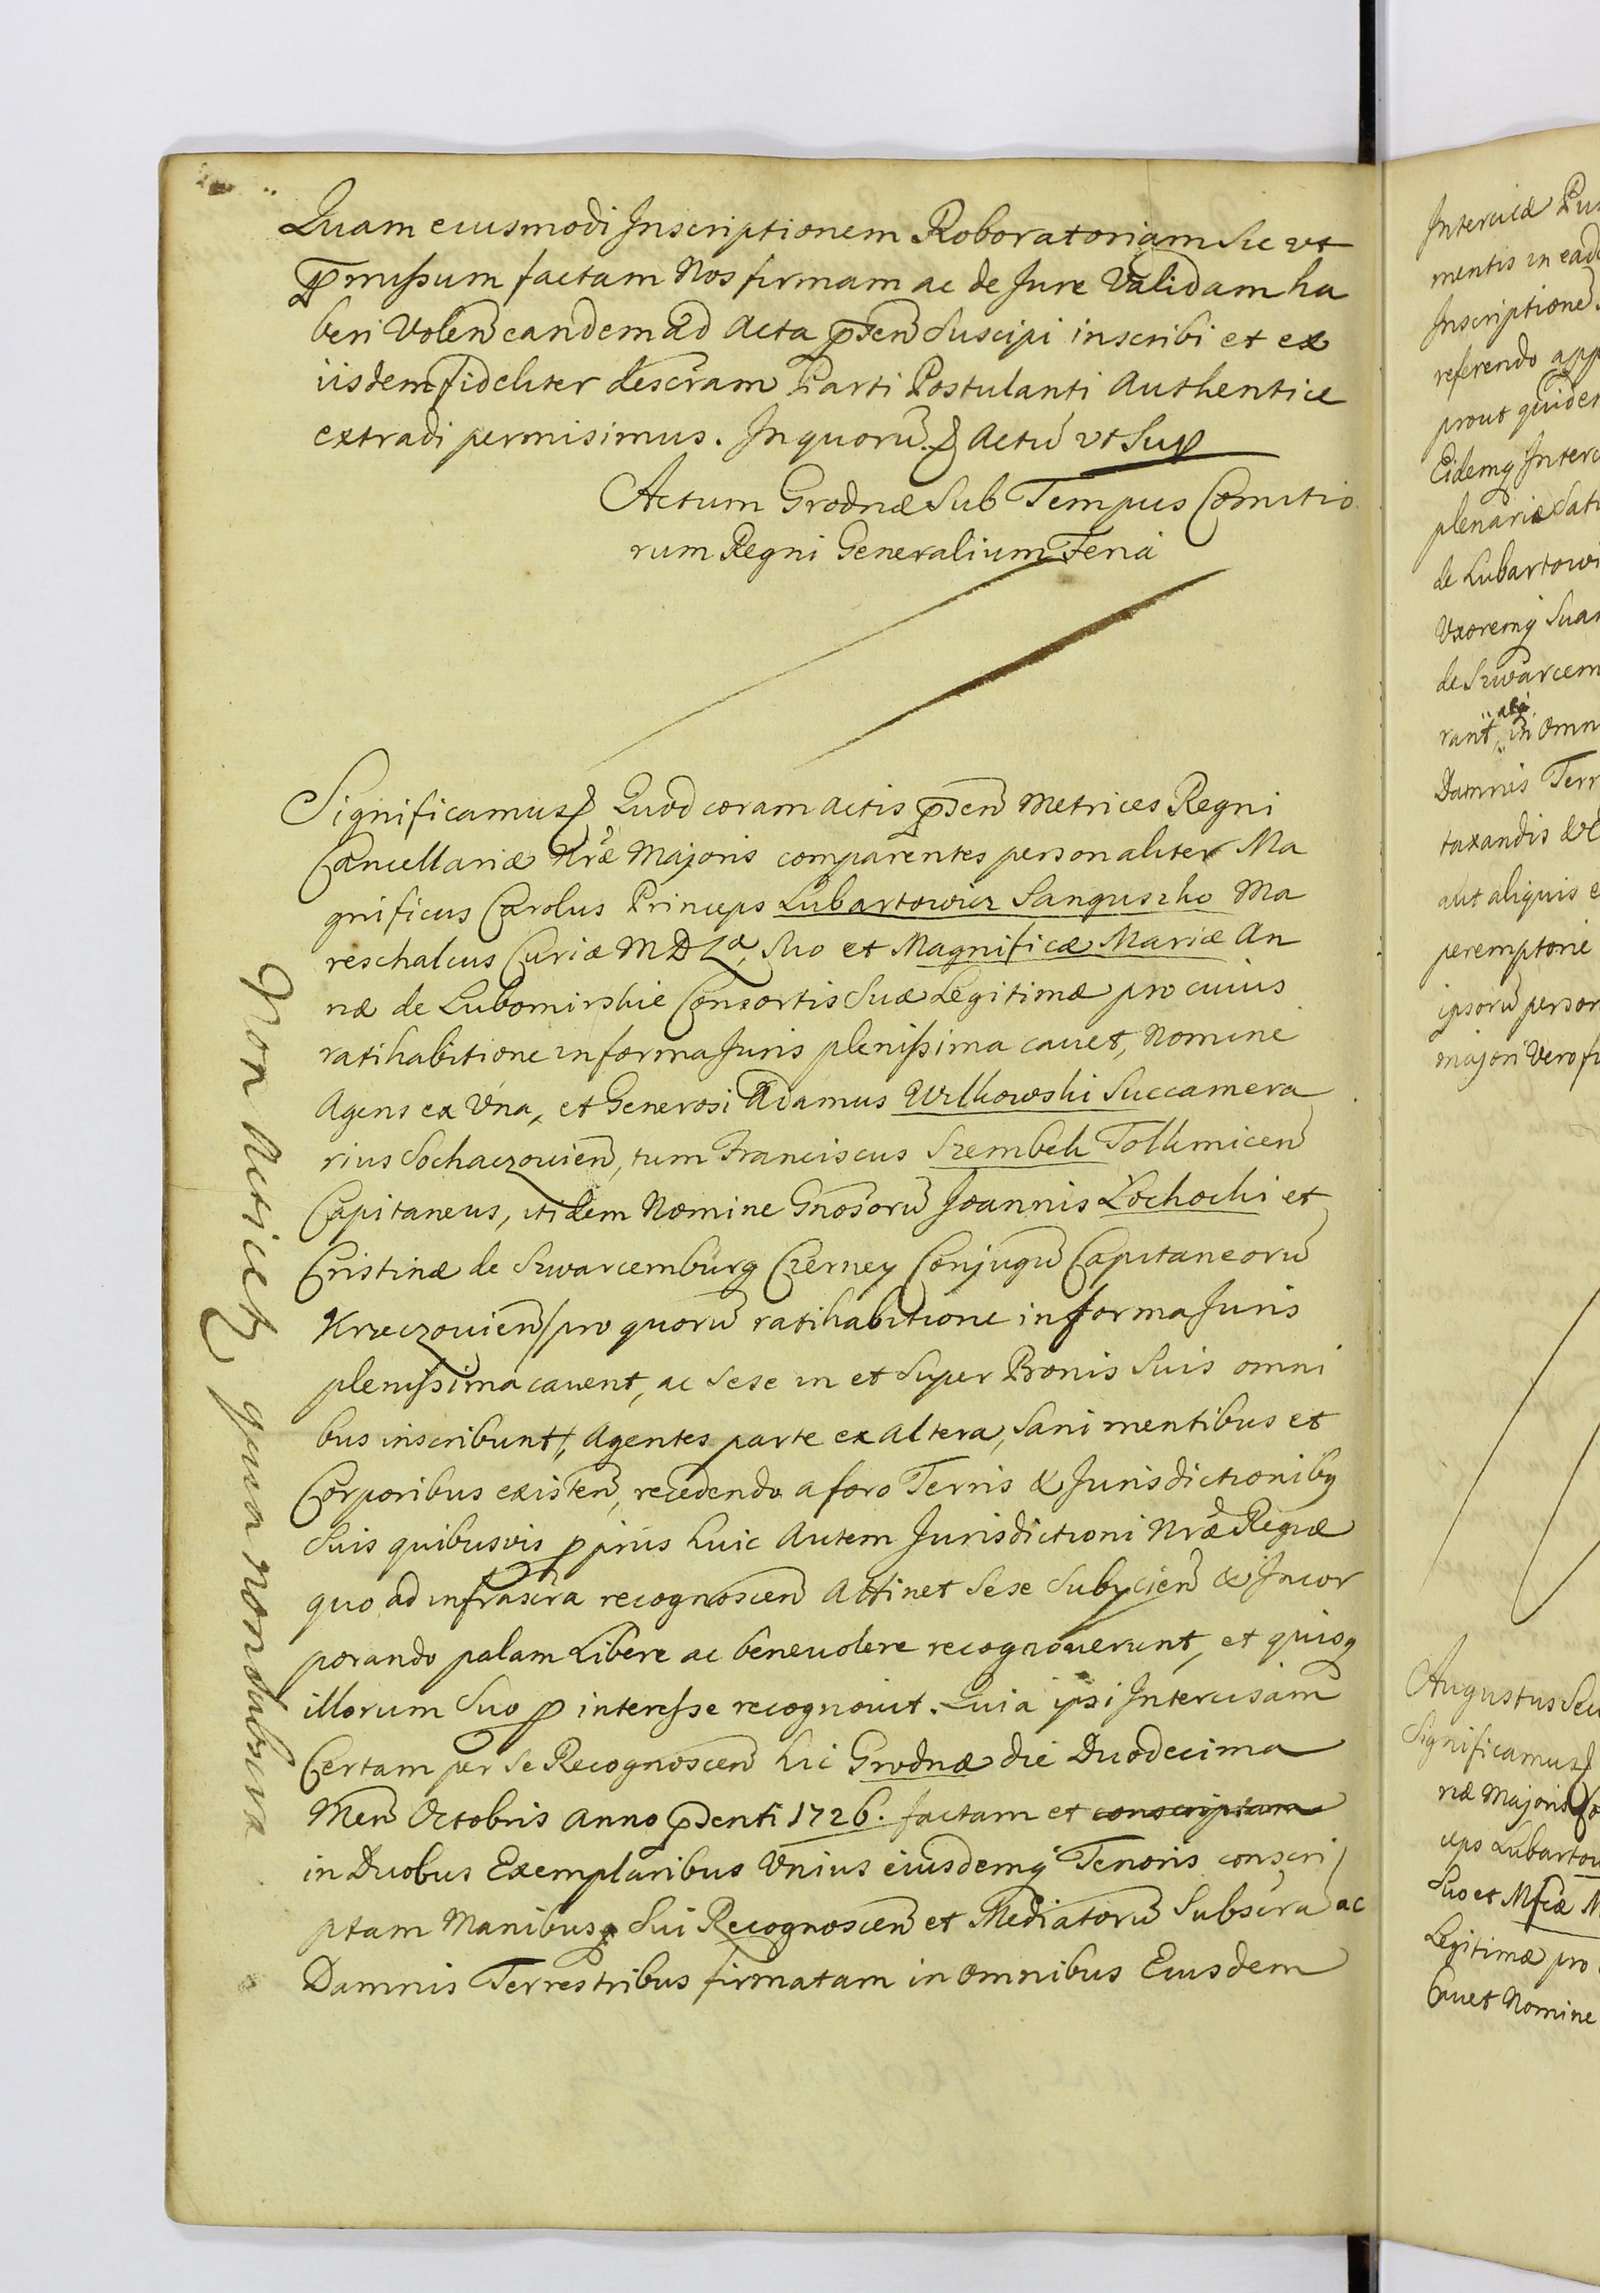 Quam eiusmodi Inscriptionem Roboratoriam Sic ut
P̄missum factam Nos firmam ac de Jure Validam ha
beri Volen̄ eandem ad Acta p̄sen̄ Suscipi inscribi et ex
iisdem fideliter descr̄am Parti Postulanti Authentice
extradi permisimus. In quorū Actū ut Sup
Actum Grodnæ Sub Tempus Comitio
rum Regni Generalium Feria
Significamus Quod coram Actis p̄sen̄ Metrices Regni
Cancellariæ Nr̄æ Majoris comparentes personaliter Ma
gnificus Carolus Princeps Lubartowicz Sanguszko Ma
reschalcus Curiæ M D L, Suo et Magnificæ Mariæ An
næ de Lubomirskie Consortis Suæ Legitimæ pro cuius
ratihabitione in forma Juris plenissima cauet, Nomine
Agens ex Una, et Generosi Adamus Wilkowski Succamera
rius Sochaczouien̄, tum Franciscus Szembek Tolkmicen̄
Capitaneus, itidem Nomine Gnosorū Joannis Łochocki et
Cristinæ de Szwarcemburg Czerney Conjugū Capitaneorū
Krzeczouien̄ /pro quorū ratihabitione in forma Juris
plenissima cauent, ac Sese in et Super Bonis Suis omni
bus inscribunt/, Agentes parte ex Altera, Sani mentibus et
Corporibus existen̄, recedendo a foro Terris & Jurisdictionibq
Suis quibusvis p̄prius huic Autem Jurisdictioni Nr̄æ Regiæ
quo ad infrascr̄a recognoscen̄ Attinet Sese Subycien̄ & Incor
porando palam Libere ac beneuolere recognouerunt, et quisq
illorum Suo p̄ interesse recognouit. Quia ipsi Intercisam
Certam per Se Recognoscen̄ hic Grodnæ die Duodecima
Men̄ Octobris Anno p̄senti 1726. factam et conscriptam
in Duobus Exemplaribus Unius eiusdemq Tenoris conscri
ptam Manibusq Sui Recognoscen̄ et Mediatorū Subscr̄a ac
Damnis Terrestribus firmatam in Omnibus Eiusdem
Non
quia non Subscr̄a
Intercisæ
mentis in
Inscriptione
referendo
prout
Eidemq
plenariæ
de
Uxoremq
de
in
Damnis
taxandis
aut aliquis
peremptorie
ipsorū
majori Vero
Augustus
Significamus
riæ Majoris
ceps
Suo et
Legitimæ pro
Cauet Nomine